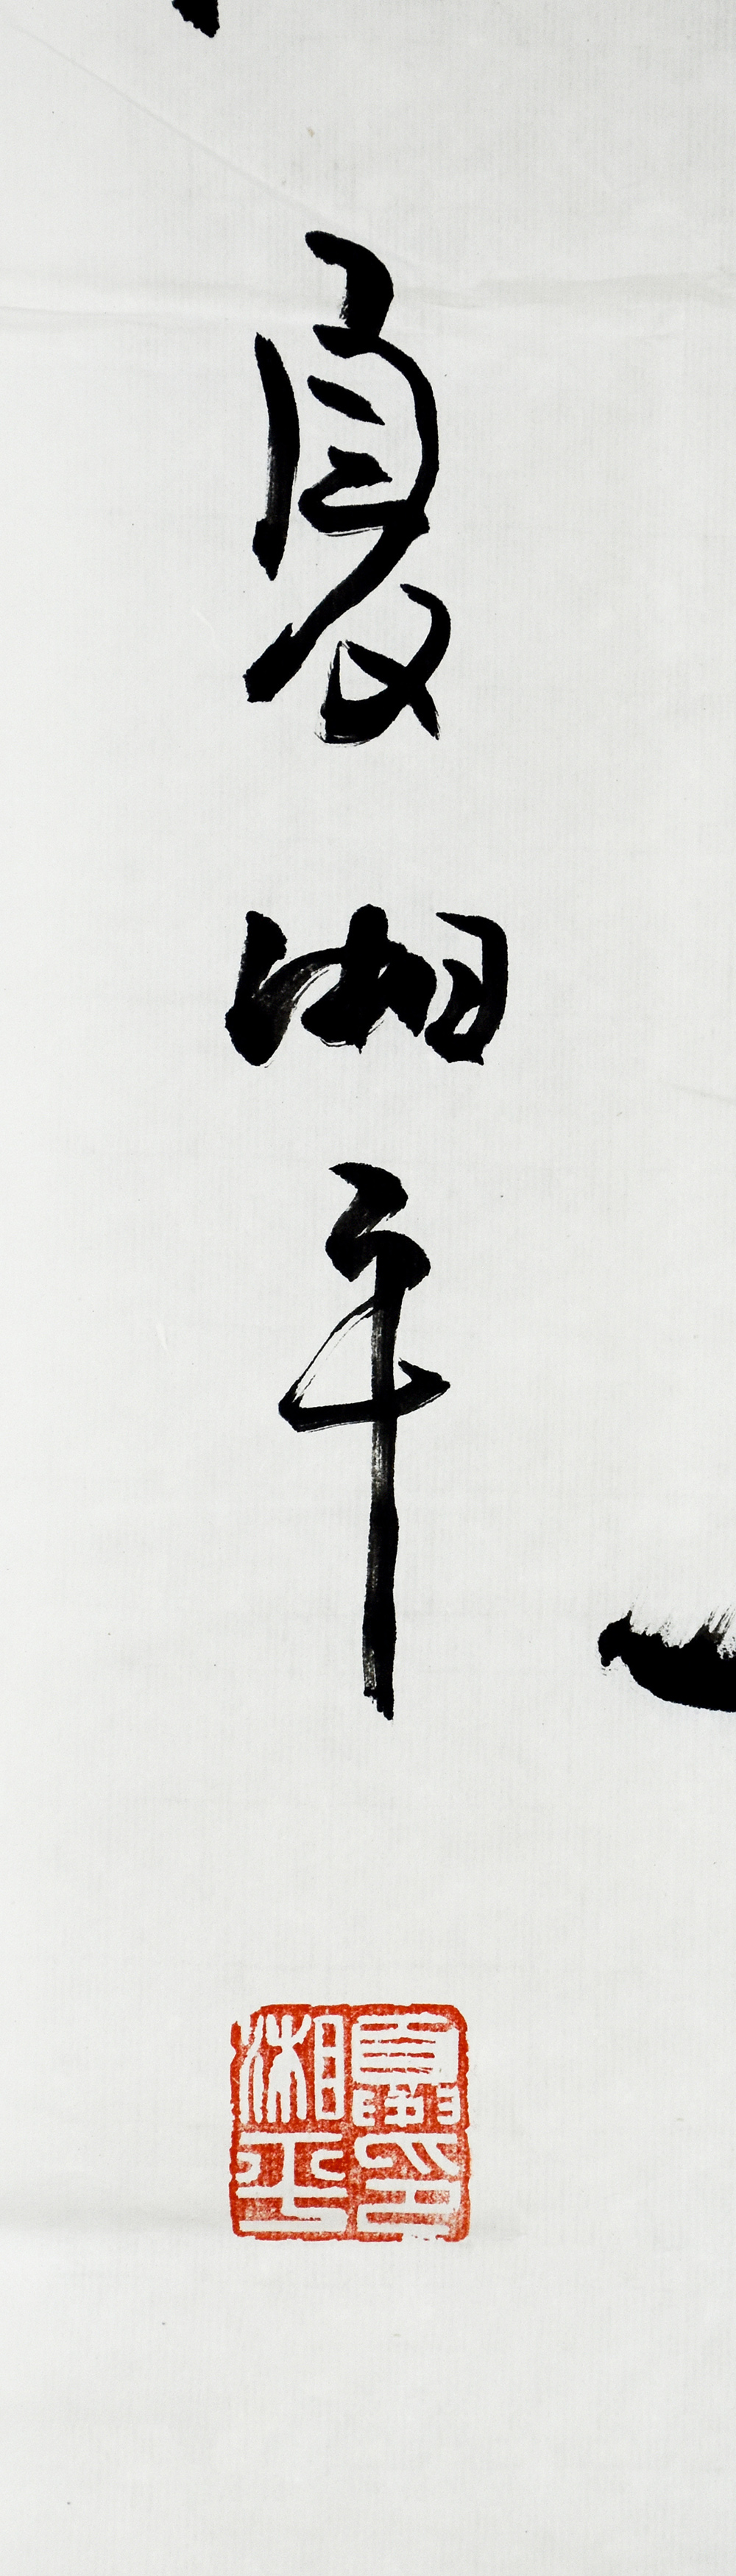 夏湘平
夏印
湘平